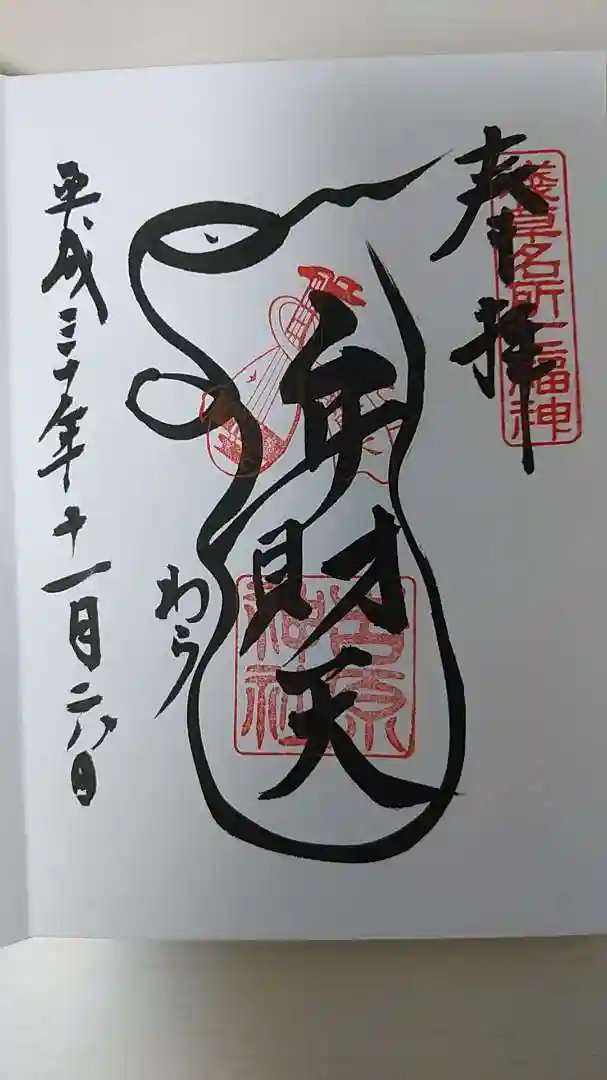 奉拝
淺草名所七福神
弁財天
吉原神社
わら
平成三十年十一月二八日